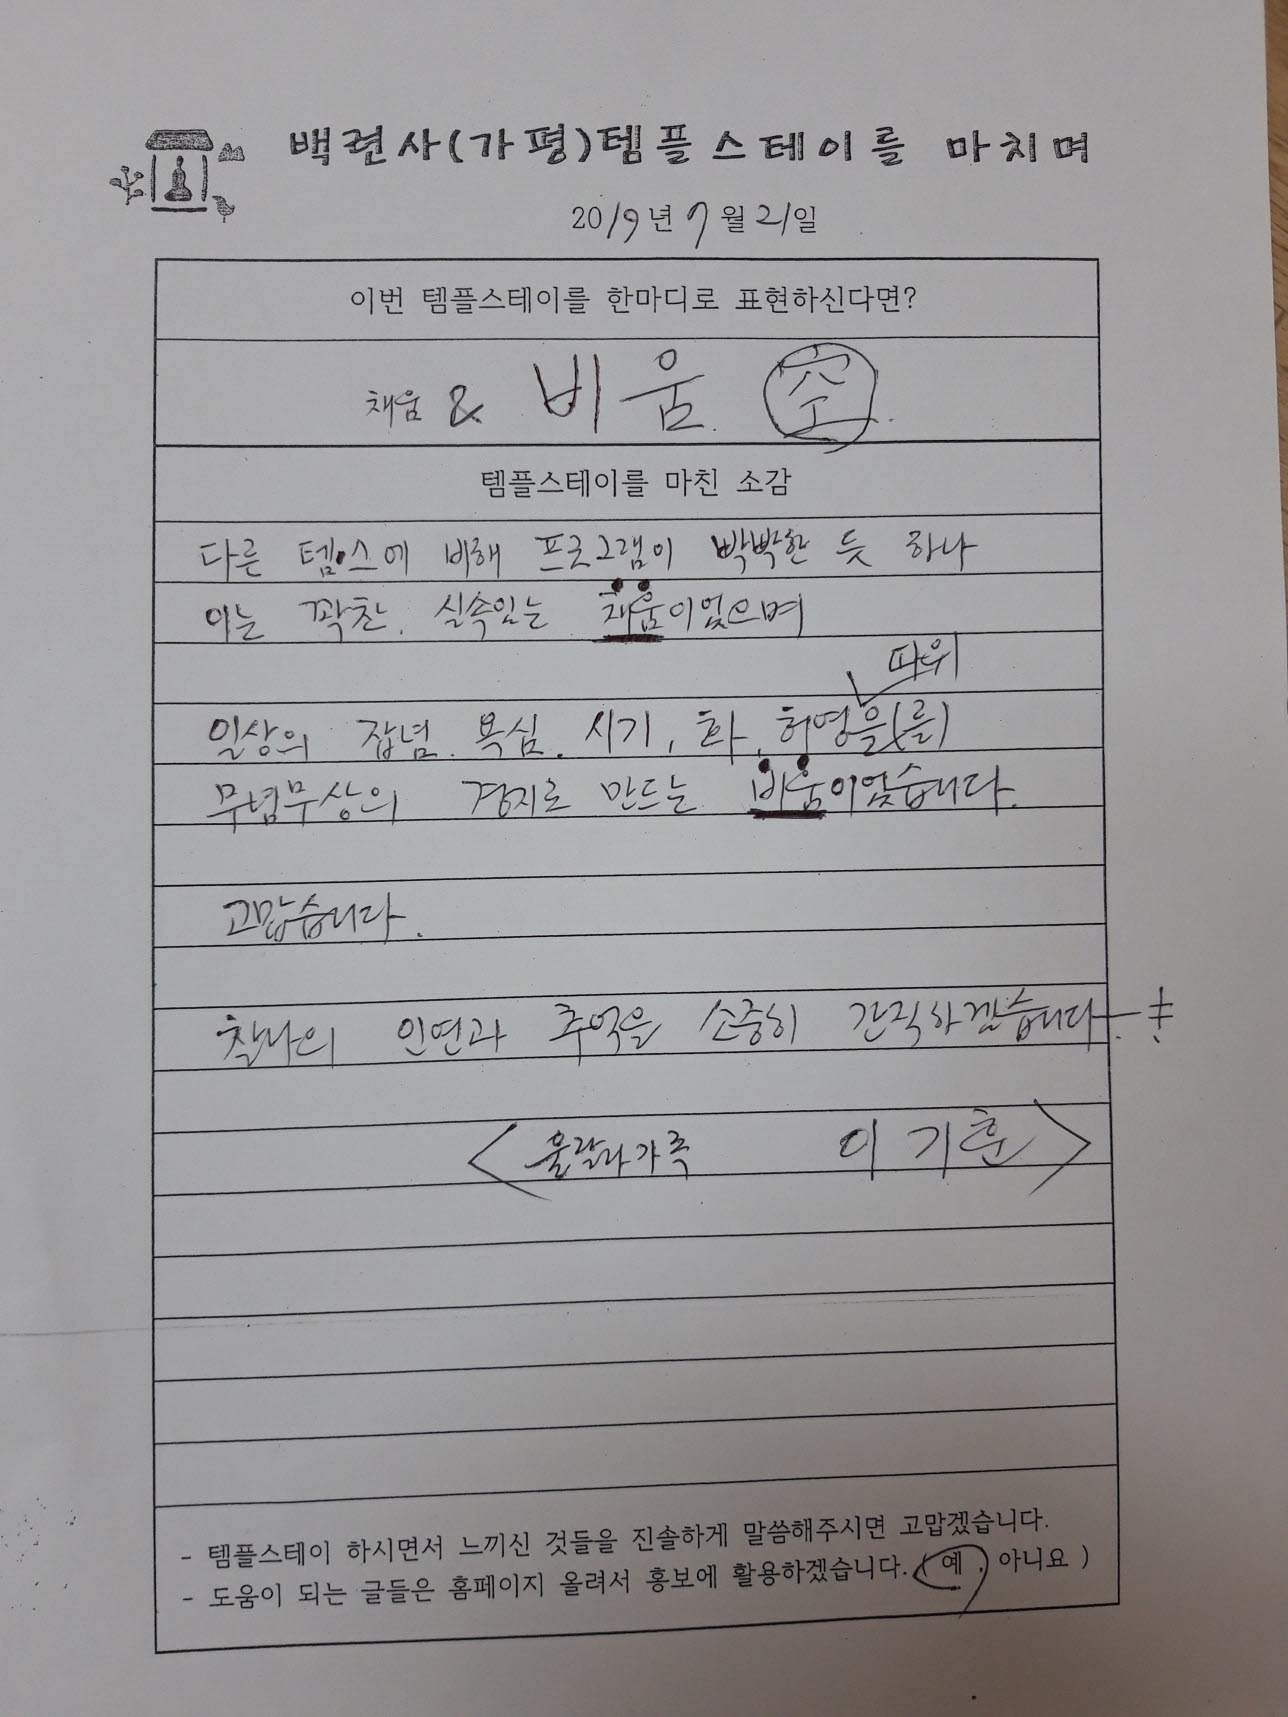 백련사(가평)템플스테이를 마치며
2019년 7월 21일
이번 템플스테이를 한마디로 표현하신다면?
채움 & 비움. 空.
템플스테이를 마친 소감
다른 템스에 비해 프로그램이 빡빡한 듯 하나
이는 꽉찬. 실속있는 채움이었으며
따위
일상의 잡념. 욕심. 시기, 화, 허영을(를)
무념무상의 경지로 만드는 비움이었습니다.
고맙습니다.
찰나의 인연과 추억을 소중히 간직하겠습니다.
<울랄라가족 이기훈>
- 템플스테이 하시면서 느끼신 것들을 진솔하게 말씀해주시면 고맙겠습니다.
- 도움이 되는 글들은 홈페이지 올려서 홍보에 활용하겠습니다. ( 예 , 아니요 )